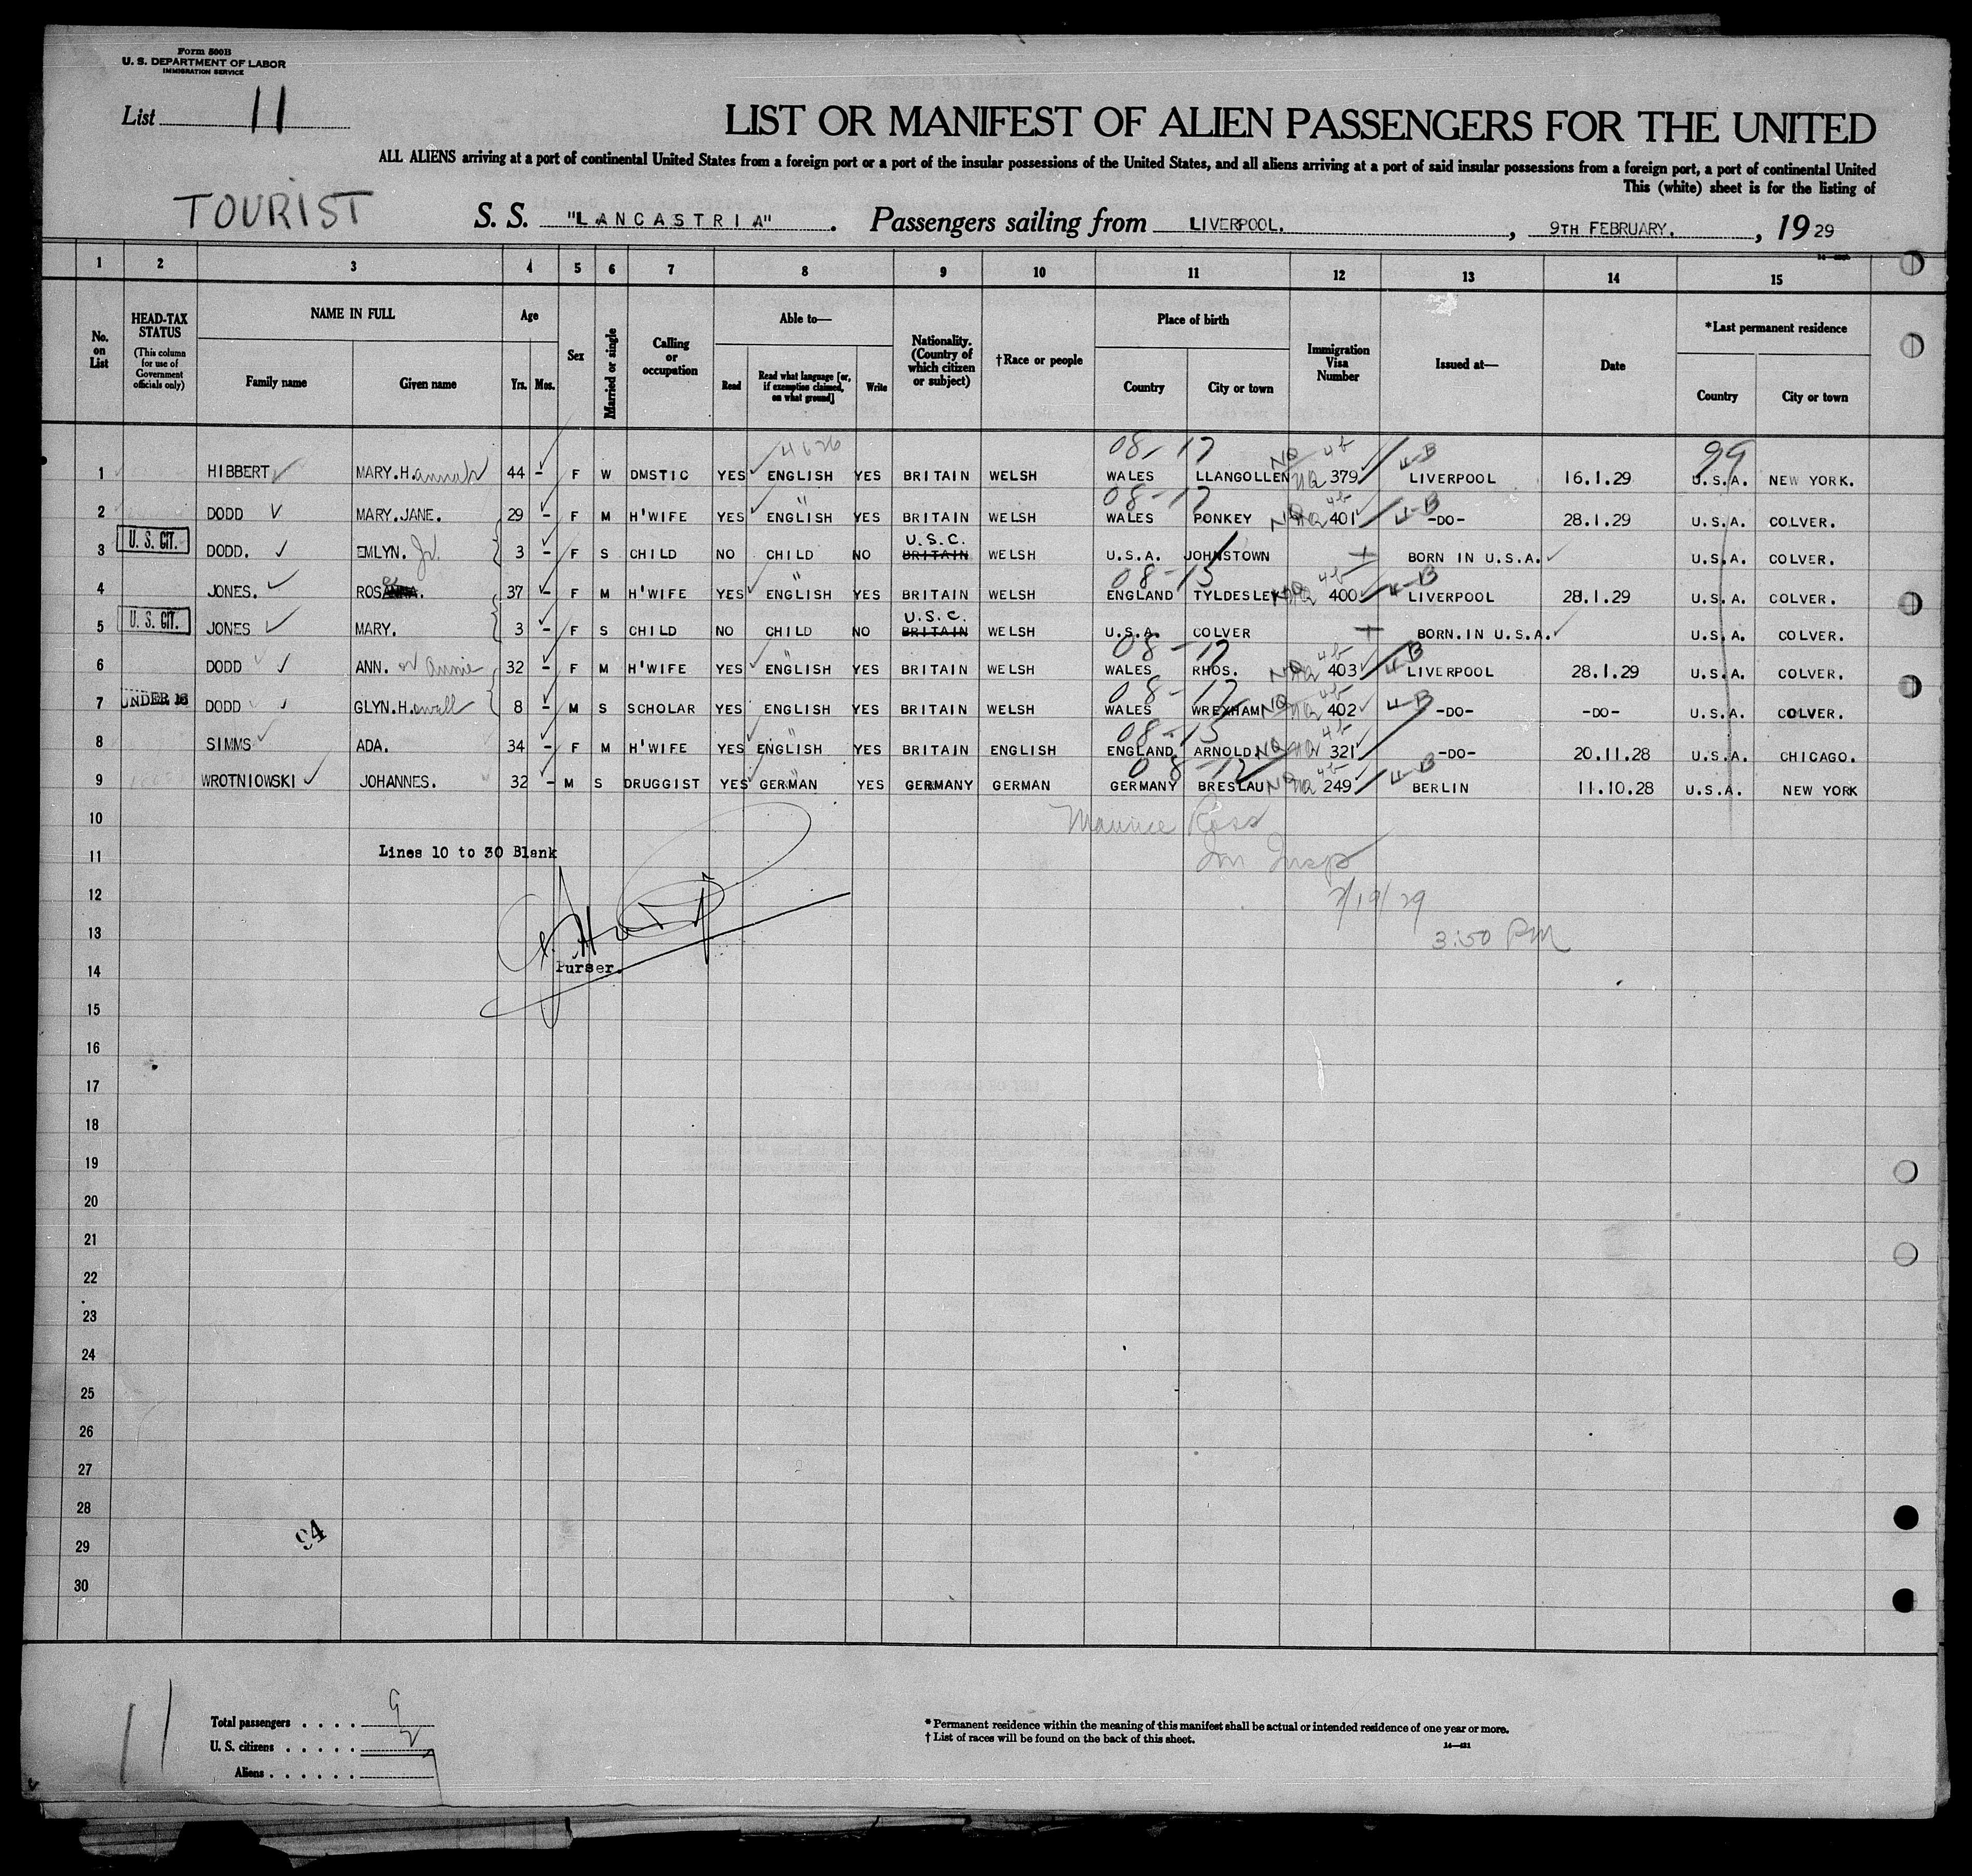 Form 500B
U. S. DEPARTMENT OF LABOR
IMMIGRATION SERVICE
List 11
LIST OR MANIFEST OF ALIEN PASSENGERS FOR THE UNITED
ALL ALIENS arriving at a port of continental United States from a foreign port or a port of the insular possessions of the United States, and all aliens arriving at a port of said insular possessions from a foreign port, a port of continental United
This (white) sheet is for the listing of
TOURIST S. S. "LANCASTRIA". Passengers sailing from LIVERPOOL. , 9TH FEBRUARY. , 19 29
1 2 3 4 5 6 7 8 9 10 11 12 13 14 15
No. on List
HEAD-TAX STATUS
(This column for use of Government officials only)
NAME IN FULL
Family name Given name
Age
Yrs. Mos.
Sex
Married or single
Calling or occupation
Able to—
Read
Read what language [or, if exemption claimed, on what ground]
Write
Nationality. (Country of which citizen or subject)
†Race or people
Place of birth
Country City or town
Immigration Visa Number
Issued at—
Date
*Last permanent residence
Country City or town
4626 08-17 NQ 4b 4-B 99
1 HIBBERT MARY.H.annah 44 - F W DMSTIC YES ENGLISH YES BRITAIN WELSH WALES LLANGOLLEN NQ 379 LIVERPOOL 16.1.29 U.S.A. NEW YORK.
08-17 4b 4-B
2 DODD MARY.JANE. 29 - F M H'WIFE YES ENGLISH YES BRITAIN WELSH WALES PONKEY NQ 401 -DO- 28.1.29 U.S.A. COLVER.
U. S. CIT. U.S.C.
3 DODD. EMLYN. Jr. 3 - F S CHILD NO CHILD NO BRITAIN WELSH U.S.A. JOHNSTOWN BORN IN U.S.A. U.S.A. COLVER.
08-15 4b 4-B
4 JONES. ROS 37 - F M H'WIFE YES ENGLISH YES BRITAIN WELSH ENGLAND TYLDESLEY NQ 400 LIVERPOOL 28.1.29 U.S.A. COLVER.
U. S. CIT. U.S.C.
5 JONES MARY. 3 - F S CHILD NO CHILD NO BRITAIN WELSH U.S.A. COLVER BORN.IN U.S.A. U.S.A. COLVER.
08-17 NQ 4b 4-B
6 DODD ANN. or Annie 32 - F M H'WIFE YES ENGLISH YES BRITAIN WELSH WALES RHOS. NQ 403 LIVERPOOL 28.1.29 U.S.A. COLVER.
UNDER 16 08-17 NQ 4b 4-B
7 DODD GLYN.H.owell 8 - M S SCHOLAR YES ENGLISH YES BRITAIN WELSH WALES WREXHAM NQ 402 -DO- -DO- U.S.A. COLVER.
08-15 4b
8 SIMMS ADA. 34 - F M H'WIFE YES ENGLISH YES BRITAIN ENGLISH ENGLAND ARNOLD. NQ NQ 321 -DO- 20.11.28 U.S.A. CHICAGO.
08-12 NQ 4b 4-B
9 WROTNIOWSKI JOHANNES. 32 - M S DRUGGIST YES GERMAN YES GERMANY GERMAN GERMANY BRESLAU NQ 249 BERLIN 11.10.28 U.S.A. NEW YORK
10 Maurice Ross
11 Lines 10 to 30 Blank Im Insp
12 2/19/29
13 3:50 PM
14 Purser.
15
16
17
18
19
20
21
22
23
24
25
26
27
28
94
29
30
11
Total passengers . . . . 9
U. S. citizens . . . . . 2
Aliens . . . . . .
* Permanent residence within the meaning of this manifest shall be actual or intended residence of one year or more.
† List of races will be found on the back of this sheet.
14—421